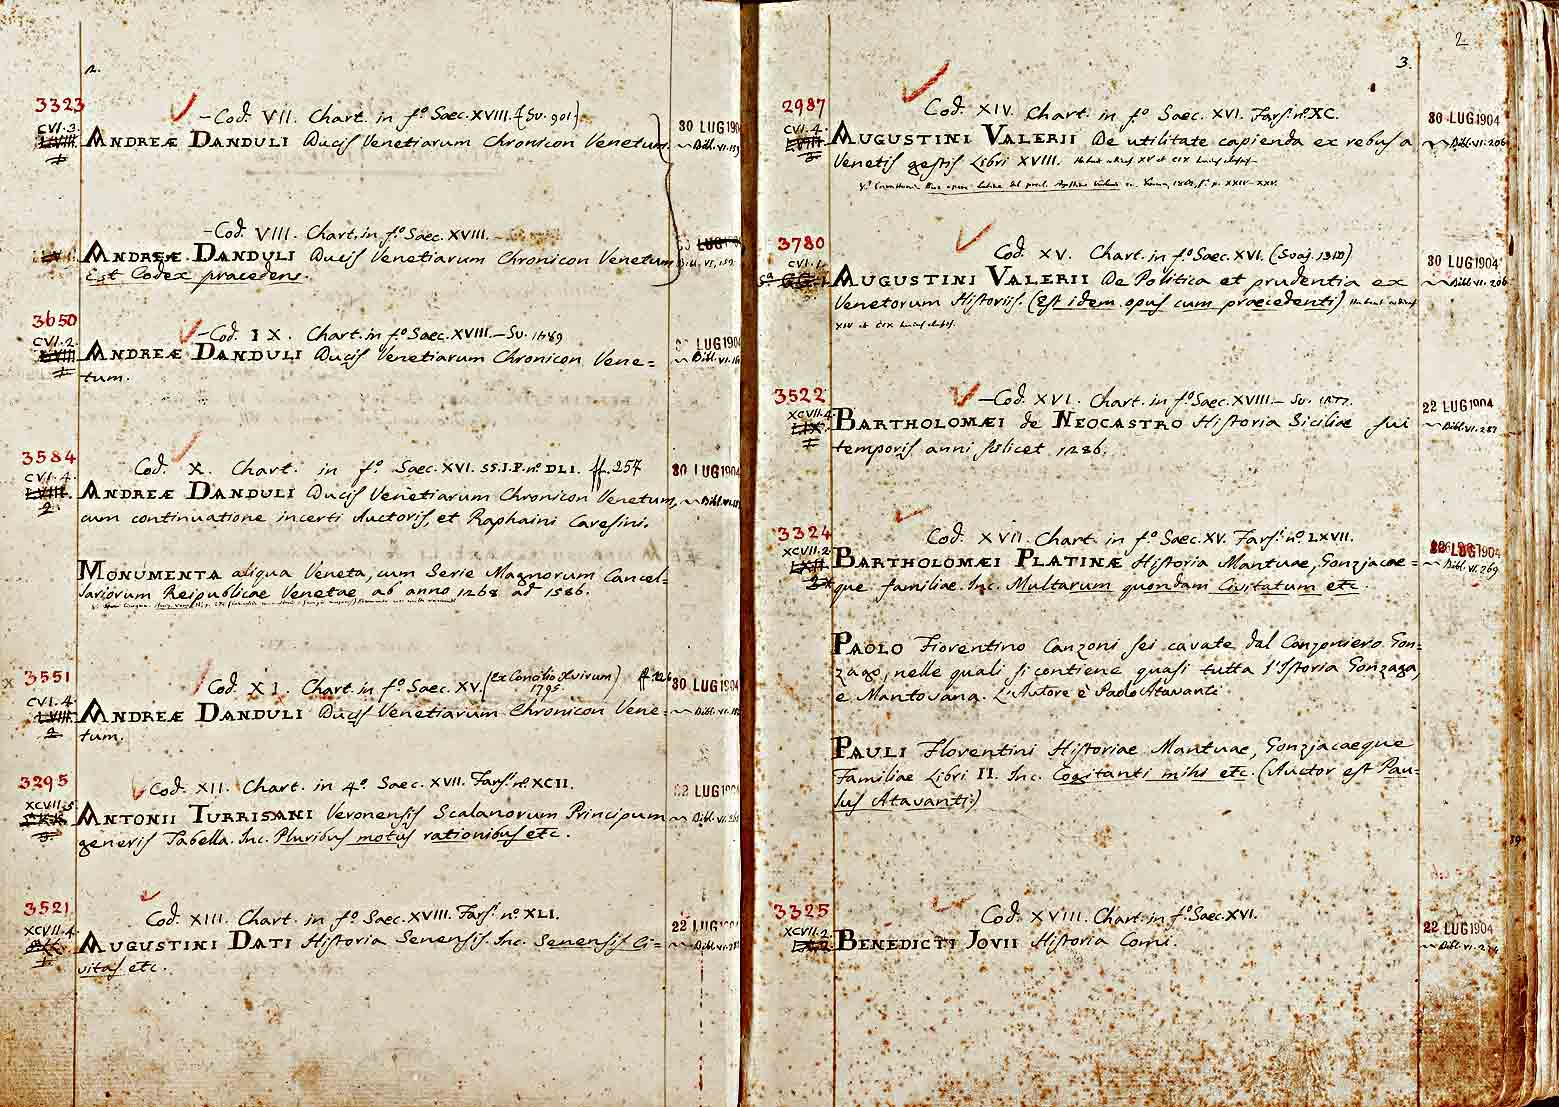 2.
3323
– Cod. VII. Chart. in f.º Saec. XVIII. (Su. 901)
CVI.3.
ANDREÆ DANDULI Ducis Venetiarum Chronicon Venetum.
30 LUG 190
Bibl. VI.
– Cod. VIII. Chart. in f.º Saec. XVIII.
ANDREÆ DANDULI Ducis Venetiarum Chronicon Venetum
Est Codex praecedens.
3650
– Cod. IX. Chart. in f.º Saec. XVIII. – Su. 1489
CVI.2.
ANDREÆ DANDULI Ducis Venetiarum Chronicon Vene=
tum.
LUG 1904
Bibl. VI.
3584
Cod. X. Chart. in f.º Saec. XVI. SS.J.P. nº DLI. ff. 257
CVI.4.
ANDREÆ DANDULI Ducis Venetiarum Chronicon Venetum,
cum continuatione incerti Auctoris, et Raphaini Caresini.
30 LUG 1904
MONUMENTA aliqua Veneta, cum Serie Magnorum Cancel=
lariorum Reipublicae Venetae ab anno 1268 ad 1586.
3551
Cod. XI. Chart. in f.º Saec. XV. (ex Concilio Xvirum 1795)
CVI.4.
ANDREÆ DANDULI Ducis Venetiarum Chronicon Vene=
tum.
30 LUG 1904
3295
Cod. XII. Chart. in 4.º Saec. XVII. Fars. nº XCII.
XCVII.5.
ANTONII TURRISANI Veronensis Scalanorum Principum
generis Tabella. Inc. Pluribus motus rationibus etc.
22 LUG 190
3521
Cod. XIII. Chart. in f.º Saec. XVIII. Fars. nº XLI.
XCVII.4.
AUGUSTINI DATI Historia Senensis. Inc. Senensis Ci=
vitas etc.
22 LUG
2
3.
2987
Cod. XIV. Chart. in f.º Saec. XVI. Fars. nº XC.
CVI.4.
AUGUSTINI VALERII De utilitate capienda ex rebus a
Venetis gestis Libri XVIII.
30 LUG 1904
Bibl. VI. 206
3780
Cod. XV. Chart. in f.º Saec. XVI. (Soaj. 1310)
CVI.1.
AUGUSTINI VALERII De Politica et prudentia ex
Venetorum Historiis. (Est idem opus cum praecedenti)
30 LUG 1904
Bibl. VI. 206
3522
– Cod. XVI. Chart. in f.º Saec. XVIII. – Su. 1877.
XCVII.4.
BARTHOLOMÆI de NEOCASTRO Historia Siciliae sui
temporis anni scilicet 1286.
22 LUG 1904
Bibl. VI. 287
3324
Cod. XVII. Chart. in f.º Saec. XV. Fars. nº LXVII.
XCVII.2.
BARTHOLOMÆI PLATINÆ Historia Mantuae, Gonzjacae=
que familiae. Inc. Multarum quondam Civitatum etc.
LUG 1904
Bibl. VI. 269
PAOLO Fiorentino Canzoni sei cavate dal Canzoniero Gon=
zago, nelle quali si contiene quasi tutta l'Istoria Gonzaga,
e Mantovana. L'Autore è Paolo Atavanti
PAULI Florentini Historiae Mantuae, Gonzjacaeque
Familiae Libri II. Inc. Cogitanti mihi etc. (Auctor est Pau=
lus Atavanti)
3325
Cod. XVIII. Chart. in f.º Saec. XVI.
XCVII.2.
BENEDICTI JOVII Historia Comi.
22 LUG 1904
Bibl. VI.